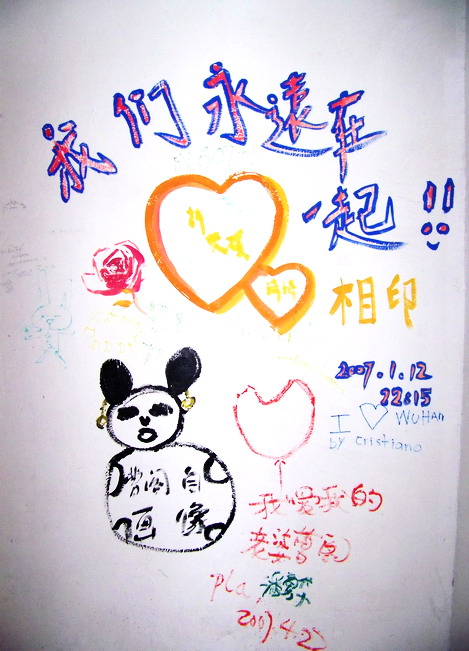 我们永遠在
一起!!
相印
2007.1.12
22:15
I ♡ WUHAN
by cristiano
自
画像
我爱我的
老婆
pla
2007.4.27